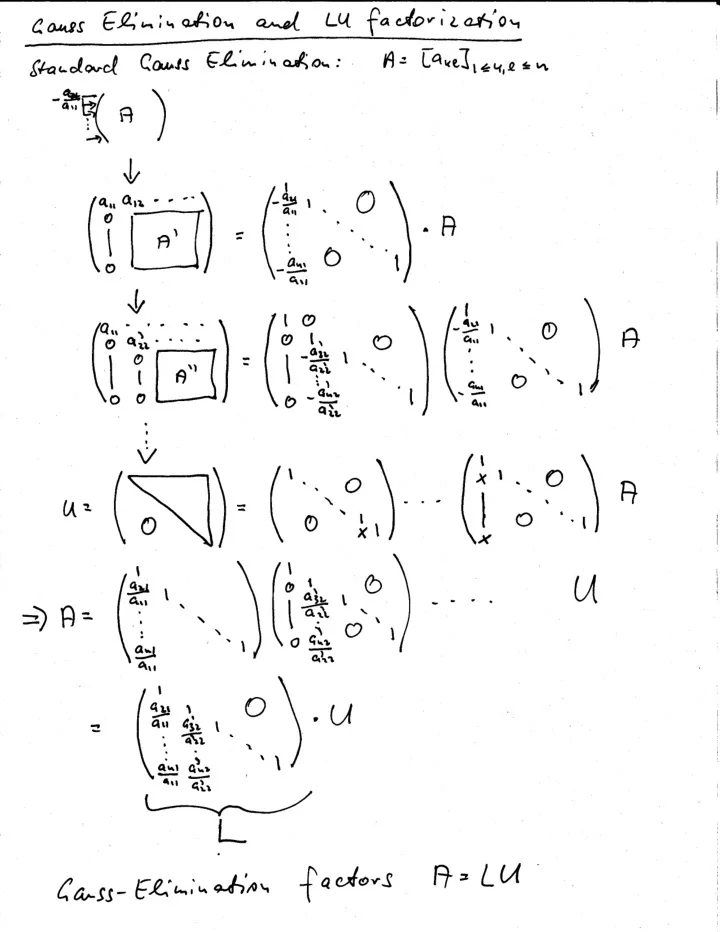 Gauss Elimination and LU factorization
Standard Gauss Elimination: A = [a_{kl}]_{1≤k,l≤n}
-a_{21}/a_{11} ( A )
↓
( a_{11} a_{12} ····
0 | 0 A' ) = ( 1
-a_{21}/a_{11} 1 0
⋮ ⋱
-a_{n1}/a_{11} 0 1 ) · A
↓
( a_{11} ·····
0 a'_{22} ····
| 0 | 0 0 A'' ) = ( 1 0
0 1 0
| -a'_{32}/a'_{22} 1
⋮ ⋱
0 -a'_{n2}/a'_{22} 1 ) ( 1
-a_{21}/a_{11} 1 0
⋮ ⋱
-a_{n1}/a_{11} 0 1 ) A
↓
U = ( 0 ) = ( 1 ⋱ 0
0 1
x 1 ) ···· ( 1
x 1 0
| ⋱
x 0 1 ) A
⇒ A = ( 1
a_{21}/a_{11} 1
⋮ ⋱
a_{n1}/a_{11} 1 ) ( 1
0 1 0
| a'_{32}/a'_{22} 1
⋱
0 a'_{n2}/a'_{22} 0 1 ) ····· U
= ( 1
a_{21}/a_{11} 1 0
a'_{32}/a'_{22} 1
⋮ ⋮ ⋱
a_{n1}/a_{11} a'_{n2}/a'_{22} 1 ) · U
L
Gauss-Elimination factors A = LU